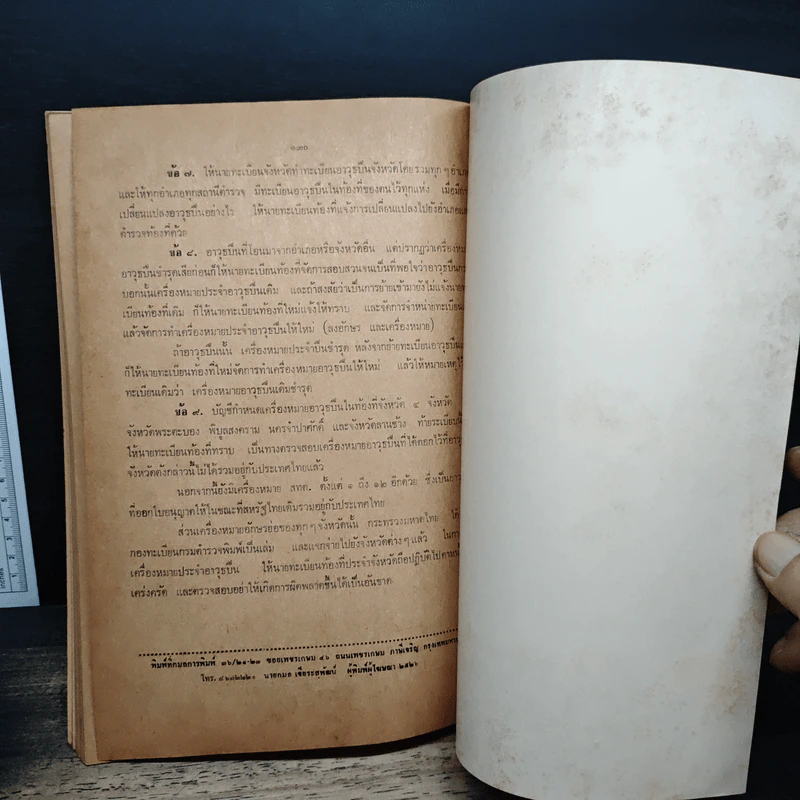 ๑๓๐
ข้อ ๗. ให้นายทะเบียนจังหวัดทำทะเบียนอาวุธปืนจังหวัดโดยรวมทุกๆอำเภอ
และให้ทุกอำเภอทุกสถานีตำรวจ มีทะเบียนอาวุธปืนในท้องที่ของตนไว้ทุกแห่ง เมื่อมี
เปลี่ยนแปลงอาวุธปืนอย่างไร ให้นายทะเบียนท้องที่แจ้งการเปลี่ยนแปลงไปยังอำเภอและ
ตำรวจท้องที่ด้วย
ข้อ ๘. อาวุธปืนที่โอนมาจากอำเภอหรือจังหวัดอื่น แต่ปรากฏว่าเครื่องหมาย
อาวุธปืนชำรุดเสียก่อนก็ให้นายทะเบียนท้องที่จัดการสอบสวนจนเป็นที่พอใจว่าอาวุธปืน
บอกนั้นเครื่องหมายประจำอาวุธปืนเดิม และถ้าสงสัยว่าเป็นการย้ายเข้ามายังไม่แจ้งนาย
เบียนท้องที่เดิม ก็ให้นายทะเบียนท้องที่ใหม่แจ้งให้ทราบ และจัดการจำหน่ายทะเบียน
แล้วจัดการทำเครื่องหมายประจำอาวุธปืนให้ใหม่ (ลงอักษร และเครื่องหมาย)
ถ้าอาวุธปืนนั้น เครื่องหมายประจำปืนชำรุด หลังจากย้ายทะเบียนอาวุธปืน
ก็ให้นายทะเบียนท้องที่ใหม่จัดการทำเครื่องหมายอาวุธปืนให้ใหม่ แล้วให้หมายเหตุ
ทะเบียนเดิมว่า เครื่องหมายอาวุธปืนเดิมชำรุด
ข้อ ๙. บัญชีกำหนดเครื่องหมายอาวุธปืนในท้องที่จังหวัด ๔ จังหวัด
จังหวัดพระตะบอง พิบูลสงคราม นครจำปาศักดิ์ และจังหวัดลานช้าง ท้ายระเบียบนี้
ให้นายทะเบียนท้องที่ทราบ เป็นทางตรวจสอบเครื่องหมายอาวุธปืนที่ได้ตอกไว้ที่
จังหวัดดังกล่าวนี้ไม่ได้รวมอยู่กับประเทศไทยแล้ว
นอกจากนี้ยังมีเครื่องหมาย สทด. ตั้งแต่ ๑ ถึง ๑๒ อีกด้วย ซึ่งเป็น
ที่ออกใบอนุญาตให้ในขณะที่สหรัฐไทยเดิมรวมอยู่กับประเทศไทย
ส่วนเครื่องหมายอักษรย่อของทุกๆจังหวัดนั้น กระทรวงมหาดไทย ได้
กองทะเบียนกรมตำรวจพิมพ์เป็นเล่ม และแจกจ่ายไปยังจังหวัดต่างๆแล้ว ในการ
เครื่องหมายประจำอาวุธปืน ให้นายทะเบียนท้องที่ประจำจังหวัดถือปฏิบัติไปตาม
เคร่งครัด และตรวจสอบอย่าให้เกิดการผิดพลาดขึ้นได้เป็นอันขาด
พิมพ์ที่กมลการพิมพ์ ๓๖/๒๑-๒๓ ซอยเพชรเกษม ๔๖ ถนนเพชรเกษม ภาษีเจริญ กรุงเทพมหา
โทร. นายกมล ผู้พิมพ์ผู้โฆษณา ๒๕๒๖
inches